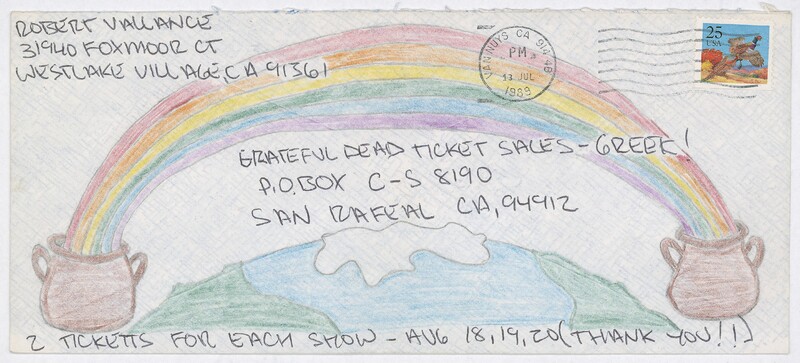 ROBERT VALLANCE
31940 FOXMOOR CT
WESTLAKE VILLAGE, CA 91361
VAN NUYS CA 914 4B
PM
13 JUL
1989
25
USA
GRATEFUL DEAD TICKET SALES - GREEK!
P.O. BOX C-S 8190
SAN RAFEAL CA, 94912
2 TICKETTS FOR EACH SHOW - AUG 18, 19, 20 (THANK YOU!!)